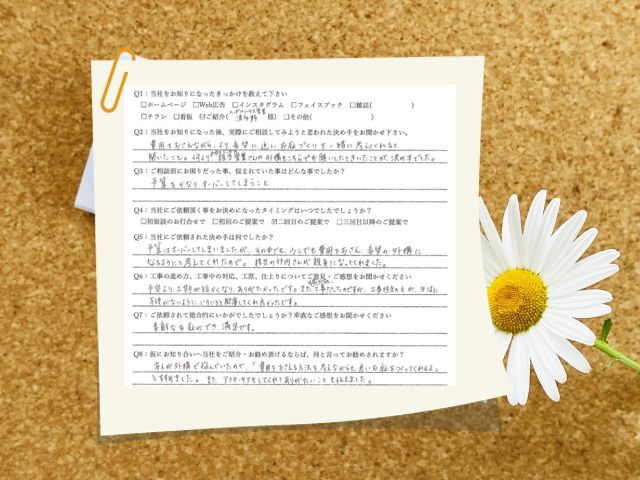 Q1：当社をお知りになったきっかけを教えて下さい
□ホームページ □Web広告 □インスタグラム □フェイスブック □雑誌( )
□チラシ □看板 ☑ご紹介( 様) □その他( )
Q2：当社をお知りになった後、実際にご相談してみようと思われた決め手をお聞かせ下さい。
費用をおさえながら、より希望に近いお庭づくりを一緒に考えてくれると
聞いたこと。何より、担当営業さんの外構もこちらでお願いしたときいたことが、決め手でした。
Q3：ご相談前にお困りだった事、悩まれていた事はどんな事でしたか？
予算をかなりオーバーしてしまうこと
Q4：当社にご依頼頂く事をお決めになったタイミングはいつでしたでしょうか？
□初面談のお打合せで □初回のご提案で ☑二回目のご提案で □三回目以降のご提案で
Q5：当社にご依頼された決め手は何でしたか？
予算はオーバーしてしまいましたが、その中でも、少しでも費用をおさえ、希望の外構に
なるようにと考えてくれたので。担当の竹内さんが親身になってくれました。
Q6：工事の進め方、工事中の対応、工期、仕上りについてご意見・ご感想をお聞かせください
予定より工期が短かくなり、ありがたかったです。まだ工事だったのですが、工事担当の方が、生活に
不便がないようにいろいろと配慮してくれ良かったです。
Q7：ご依頼されて総合的にいかがでしたでしょうか？率直なご感想をお聞かせください
素敵なお庭ができ、満足です。
Q8：仮にお知り合いへ当社をご紹介・お勧め頂けるならば、何と言ってお勧めされますか？
友人が外構で悩んでいたので、「費用をおさえる方法を考えながらも、良いお庭をつくってくれるよ」
とすすめました。また、アフターケアもしてくれてありがたいことも伝えました。